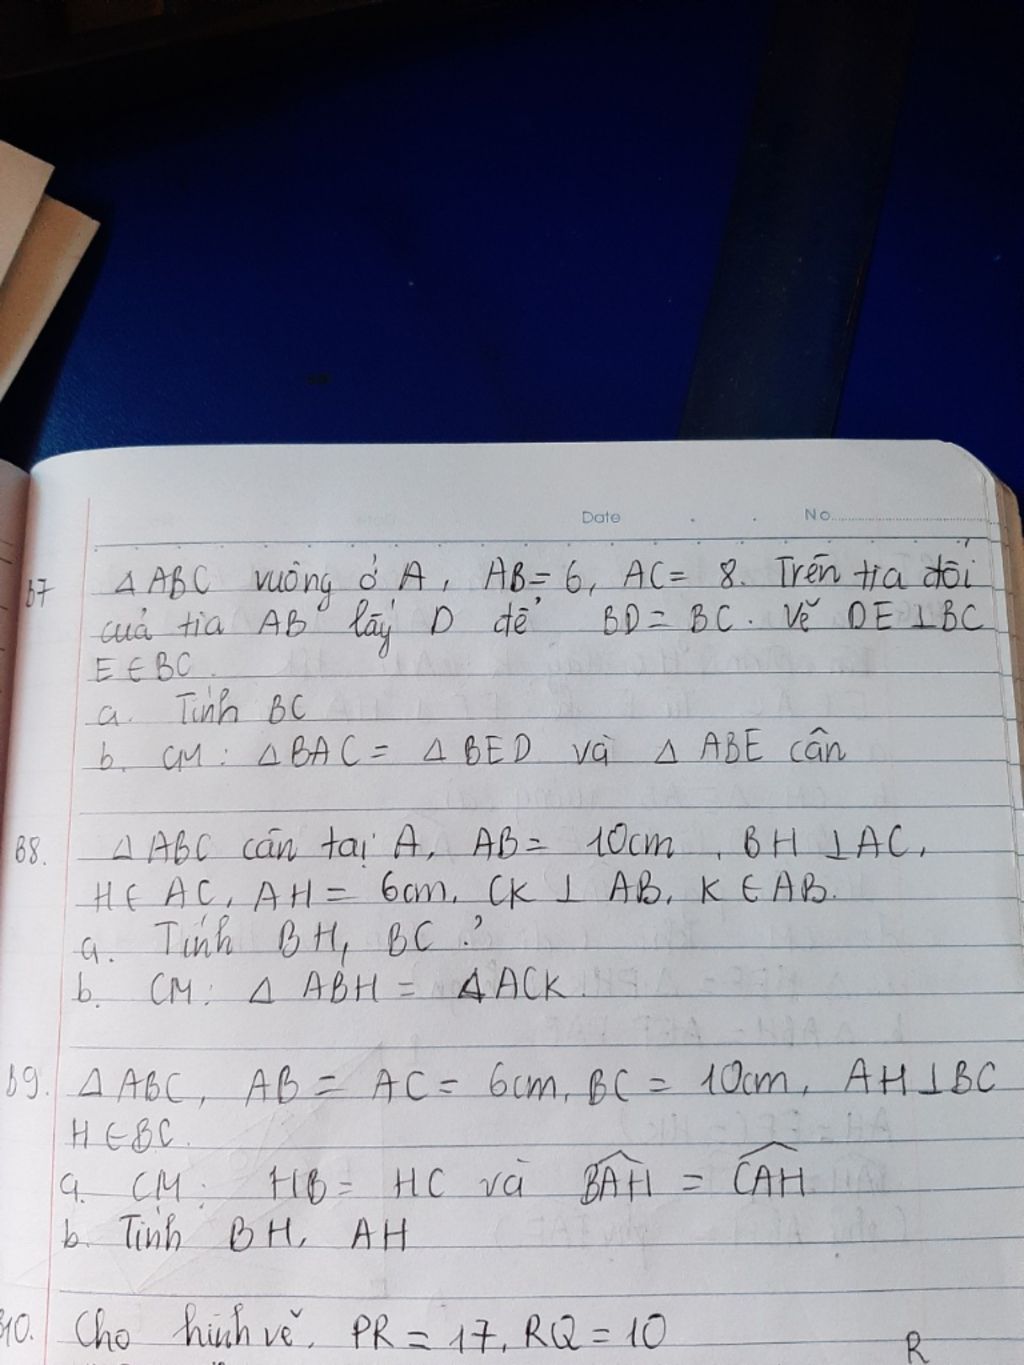 Date . . No
B7 Δ ABC vuông ở A, AB= 6, AC= 8. Trên tia đối
của tia AB lấy D để BD= BC. Vẽ DE ⊥ BC
E ∈ BC.
a. Tính BC
b. CM: Δ BAC = Δ BED và Δ ABE cân
B8. Δ ABC cân tại A, AB= 10cm, BH ⊥ AC,
H ∈ AC, AH = 6cm, CK ⊥ AB, K ∈ AB.
a. Tính BH, BC ?
b. CM: Δ ABH = Δ ACK.
B9. Δ ABC, AB = AC = 6cm, BC = 10cm, AH ⊥ BC
H ∈ BC.
a. CM: HB = HC và \widehat{BAH} = \widehat{CAH}
b. Tính BH, AH
B10. Cho hình vẽ, PR = 17, RQ = 10
R